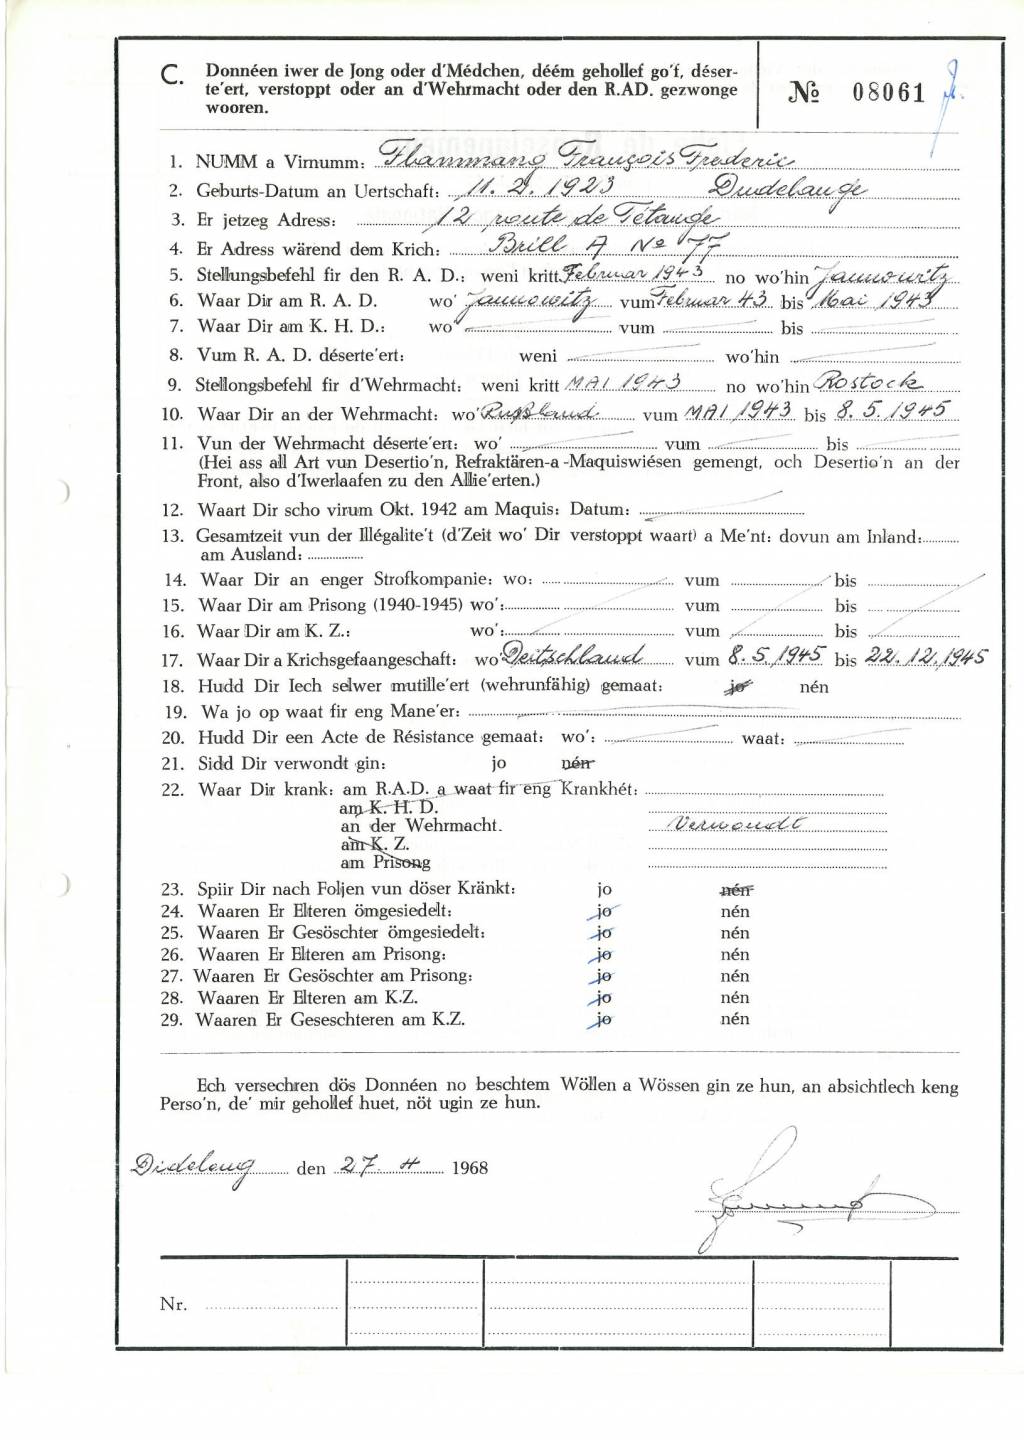 C. Donnéen iwer de Jong oder d'Médchen, déém gehollef go'f, déser-
te'ert, verstoppt oder an d'Wehrmacht oder den R.AD. gezwonge
wooren.
№ 08061
1. NUMM a Virnumm: Flammang François Frederic
2. Geburts-Datum an Uertschaft: 11. 2. 1923 Dudelange
3. Er jetzeg Adress: 12 route de Tétange
4. Er Adress wärend dem Krich: Brill A No 77
5. Stellungsbefehl fir den R. A. D.: weni kritt Februar 1943 no wo'hin Jannowitz
6. Waar Dir am R. A. D. wo' Jannowitz vum Februar 43 bis Mai 1943
7. Waar Dir am K. H. D.: wo' vum bis
8. Vum R. A. D. déserte'ert: weni wo'hin
9. Stellongsbefehl fir d'Wehrmacht: weni kritt MAI 1943 no wo'hin Rostock
10. Waar Dir an der Wehrmacht: wo' Rußland vum MAI 1943 bis 8. 5. 1945
11. Vun der Wehrmacht déserte'ert: wo' vum bis
(Hei ass all Art vun Desertio'n, Refraktären-a-Maquiswiésen gemengt, och Desertio'n an der
Front, also d'Iwerlaafen zu den Allie'erten.)
12. Waart Dir scho virum Okt. 1942 am Maquis: Datum:
13. Gesamtzeit vun der Illégalite't (d'Zeit wo' Dir verstoppt waart) a Me'nt: dovun am Inland:
am Ausland:
14. Waar Dir an enger Strofkompanie: wo: vum bis
15. Waar Dir am Prisong (1940-1945) wo': vum bis
16. Waar Dir am K. Z.: wo': vum bis
17. Waar Dir a Krichsgefaangeschaft: wo' Deitschland vum 8. 5. 1945 bis 22. 12. 1945
18. Hudd Dir Iech selwer mutille'ert (wehrunfähig) gemaat: jo nén
19. Wa jo op waat fir eng Mane'er:
20. Hudd Dir een Acte de Résistance gemaat: wo': waat:
21. Sidd Dir verwondt gin: jo nén
22. Waar Dir krank: am R.A.D. a waat fir eng Krankhét:
am K. H. D.
an der Wehrmacht. Verwondt
am K. Z.
am Prisong
23. Spiir Dir nach Foljen vun döser Kränkt: jo nén
24. Waaren Er Elteren ömgesiedelt: jo nén
25. Waaren Er Gesöschter ömgesiedelt: jo nén
26. Waaren Er Elteren am Prisong: jo nén
27. Waaren Er Gesöschter am Prisong: jo nén
28. Waaren Er Elteren am K.Z. jo nén
29. Waaren Er Geseschteren am K.Z. jo nén
Ech versechren dös Donnéen no beschtem Wöllen a Wössen gin ze hun, an absichtlech keng
Perso'n, de' mir gehollef huet, nöt ugin ze hun.
Dideleng den 27. 4 1968
Nr.